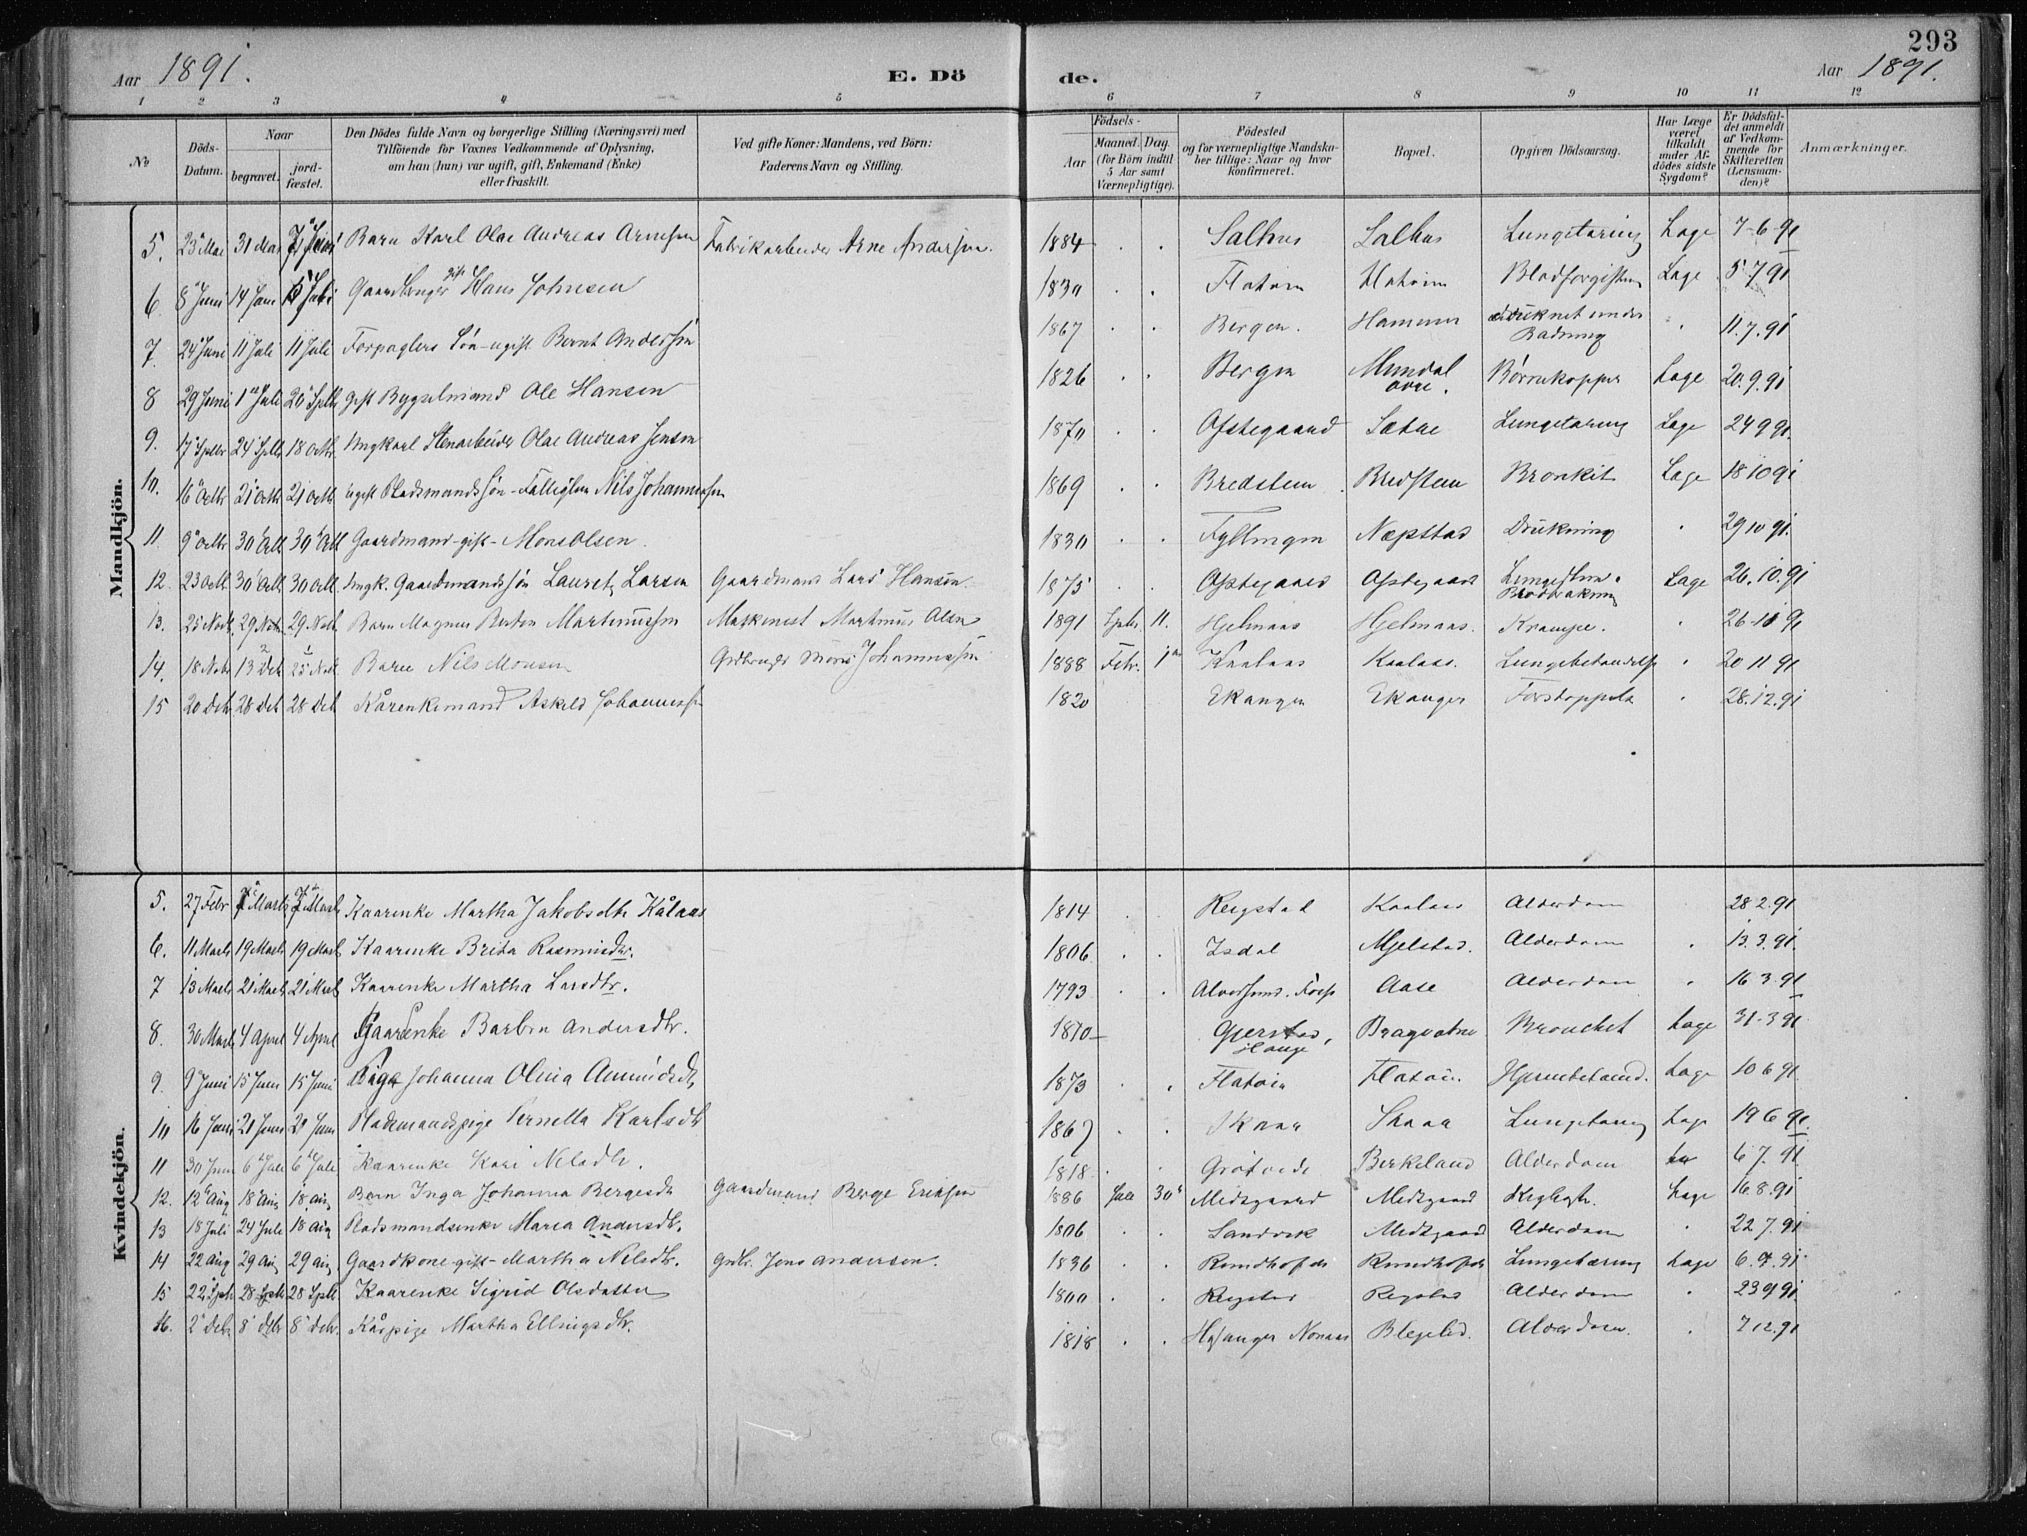 293
Aar 1891. E. Dö de. Aar 1891.
1 2 3 4 5 6 7 8 9 10 11 12
№ Döds-Datum. Naar begravet. jordfæstet. Den Dödes fulde Navn og borgerlige Stilling (Næringsvei) med Tilföiende for Voxnes Vedkommende af Oplysning, om han (hun) var ugift, gift, Enkemand (Enke) eller fraskilt. Ved gifte Koner: Mandens, ved Börn: Faderens Navn og Stilling. Födsels- Aar Maaned. Dag. (for Börn indtil 5 Aar samt Værnepligtige). Födested og for værnepligtige Mandskaber tillige: Naar og hvor konfirmeret. Bopæl. Opgiven Dödsaarsag. Har Læge været tilkaldt under Afdödes sidste Sygdom? Er Dödsfaldet anmeldt af Vedkommende for Skifteretten (Lensmanden)? Anmærkninger.
Mandkjön.
5. 25 Mai 31 Mai 7 Juni Barn Karl Olae Andreas Arnesen Fabrikarbeider Arne Andersen. 1884 Salhus Salhus Lungetæring Læge 7-6-91
6 8 Juni 14 Juni 5 Juli Gaardbruger gift Hans Johnsen 1830 Flatøen Flatøen Blodforgiftn Læge 5 7 91
7. 24 Juni 11 Juli 11 Juli Forpagters Søn - ugift Bernt Andersen 1867 Bergen. Hammer druknet under Badning 11.7.91
8 29 Juni 1 Juli 20 Septbr gift Bygselmand Ole Hansen 1826 Bergen Mundal øvre. Børnekopper Læge 20.9.91
9. 17 Septbr 24 Septbr 18 Octbr. Ungkarl Stenarbeider Olae Andreas Jensen 1870 Ofstegaard Sætre Lungetæring Læge 24 9 91.
10. 16 Octbr 21 Octb 21 Octb ugift Pladsmandssøn - Fattiglem Nils Johannessen 1869 Bredstem Bredstem Bronkit Læge 18 10 91
11. 9 Octbr 30 Octb 30 Octb Gaardmand - gift - Mons Olsen. 1830 Fyllingen Næpstad Drukning 29 10 91.
12. 23 Octb 30 Octb 30 Octb Ungk. Gaardmandssøn Lauretz Larsen Gaardmand Lars Hansen. 1875 Ofstegaard Ofstegaard Læge 26.10.91
13. 25 Novb. 29 Novb. 29 Novb. Barn Magnus Anton Martinussen Maskinist Martinus Olsen 1891 Septbr. 11. Hjelmaas Hjelmaas. Krampe. 26-11 91
14. 18 Novbr 13 Deb 25 Novb Barn Nils Monsen Grdbruger Mons Johannessen 1888 Febr. 1 Kaalaas Kaalaas. Lungebetændelse 20 11 91
15 20 Debr 28 Deb 28 Deb Kårenkemand Askild Johannessen 1820 Ekanger Ekanger Forstoppelse 28.12.91
Kvindekjön.
5. 27 Febr 7 Marts 7 Marts Kaarenke Martha Jakobsdtr Kålaas 1814 Reigstad Kaalaas Alderdom 28.2.91
6. 11 Marts 19 Marts 19 Marts Kaarenke Brita Rasmusdtr. 1806. Isdal Mjelstad. Alderdom 13.3.91.
7 13 Marts 21 Marts 21 Marts Kaarenke Martha Larsdtr. 1793 Alversund. Aase Alderdom 16 3 91
8. 30 Marts 4 April 4 April Gaardenke Barbra Andersdtr. 1810 Gjerstad, Hauge Bragvatne Bronchit Læge 31-3 91
9. 9 Juni 15 Juni 15 Juni Pige Johanna Olina Amundsdtr 1873 Flatøen Flatøen. Hjernebetænd. Læge 10 6 91.
10 16 Juni 21 Juni 21 Juni Pladsmandspige Pernella Karlsdtr 1867 Skaar Skaar Lungetæring Læge 19 6 91.
11 30 Juni 6 Juli 6 Juli Kaarenke Kari Nilsdtr. 1818. Grøtvedt Birkeland Alderdom 6 7. 91
12. 12 Aug 18 Aug 18 Aug Barn Inga Johanna Bergesdtr Gaardmand Berge Eriksen 1886 Juli 30 Midtgaard Midtgaard Læge 16.8.91
13 18 Juli 24 Juli 18 Aug Pladsmandsenke Maria Andersdtr. 1806 Sandvik Midtgaard Alderdom 22.7.91
14 22 Aug 29 Aug 29 Aug. Gaardkone gift - Martha Nilsdtr. Grdbr. Jens Andersen. 1836 Rundhofde Rundhofde Lungetæring Læge 6.9.91.
15 22 Sptb 28 Sptb 28 Sptb Kaarenke Sigrid Olsdatter 1800 Reigstad Reigstad Alderdom 23 9 91
16. 2 Debr. 8 Debr 8 Debr. Kårpige Martha Ellingsdtr. 1818 Alderdom. 7 12.91